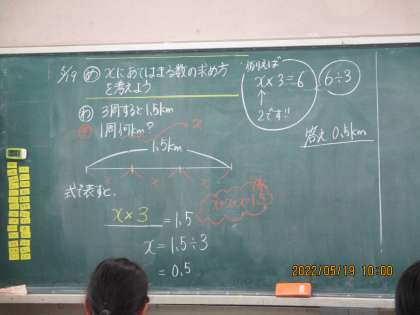 5/19 め xにあてはまる数の求め方
を考えよう
わ 3周すると1.5km
き 1周何km?
x
1.5km
x x x
式で表すと、
x×3 = 1.5
x = 1.5÷3
= 0.5
x+x+x=1.5
例えば
x×3=6
↑
2です!!
6÷3
答え 0.5km
2022/05/19 10:00